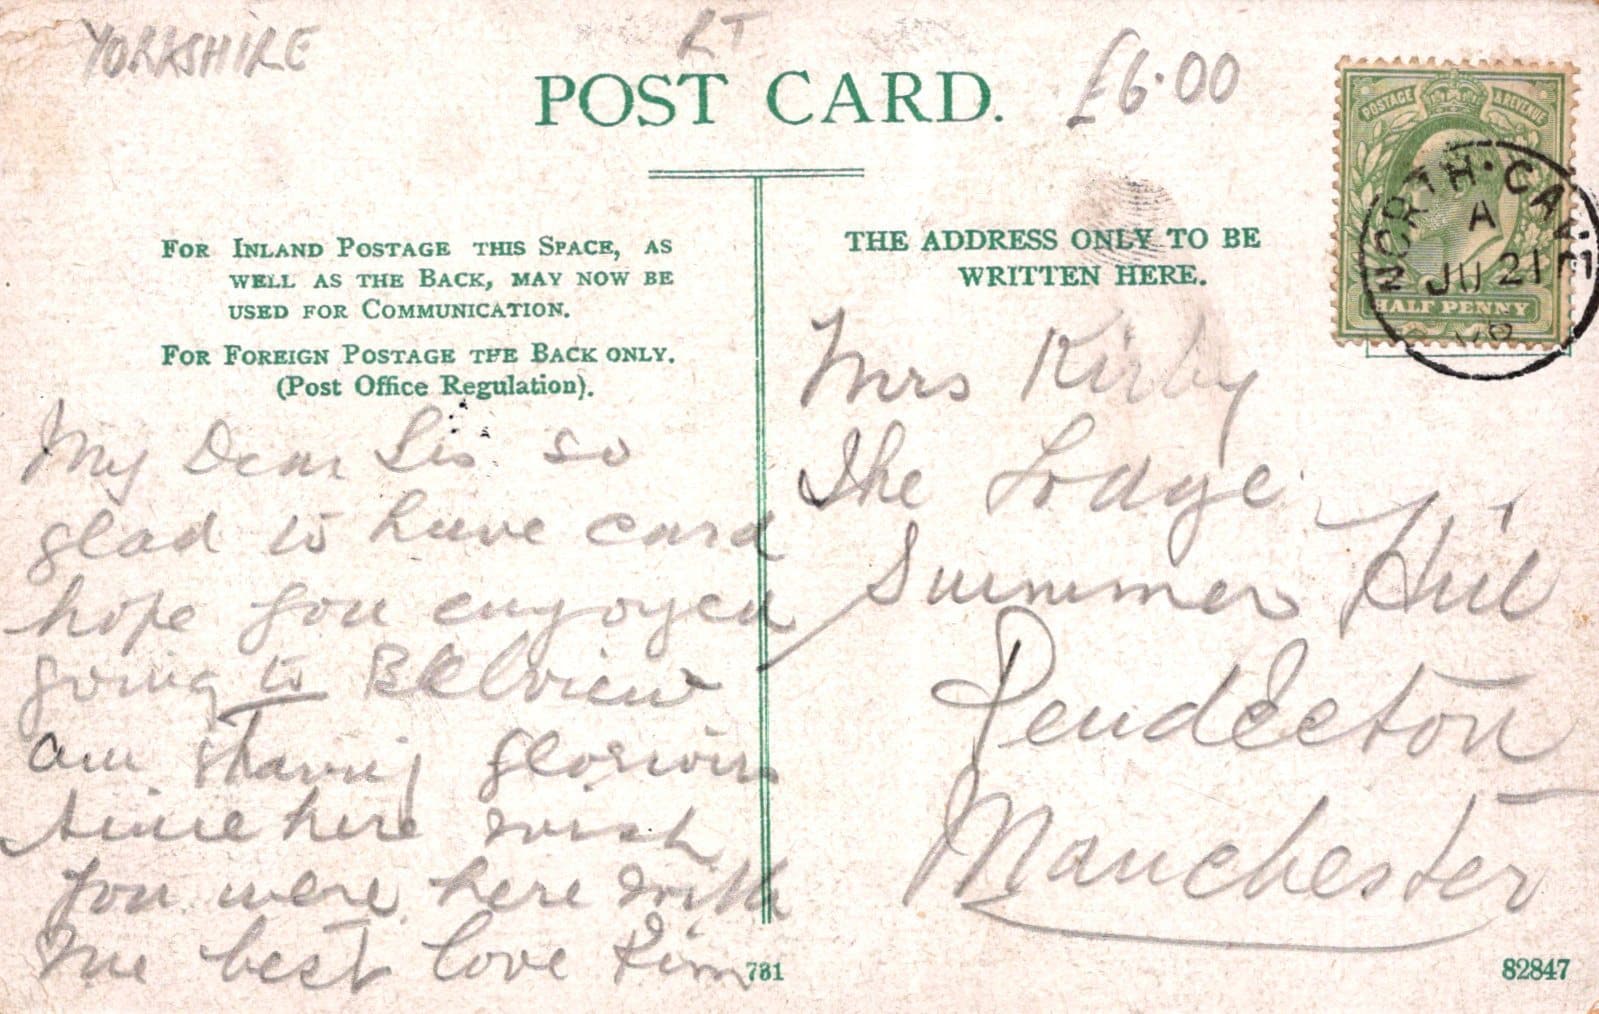 YORKSHIRE
RT
£6.00
POST CARD.
FOR INLAND POSTAGE THIS SPACE, AS
WELL AS THE BACK, MAY NOW BE
USED FOR COMMUNICATION.
FOR FOREIGN POSTAGE THE BACK ONLY.
(Post Office Regulation).
My Dear Sis so
glad to have card
hope you enyoyed
going to Bellview
am having glorious
time here wish
you were here with
me best love
THE ADDRESS ONLY TO BE
WRITTEN HERE.
Mrs Kirby
The Lodge
Summer Hill
Pendleton
Manchester
POSTAGE & REVENUE
HALF PENNY
NORTH·CAVE
A
JU 21
08
731
82847